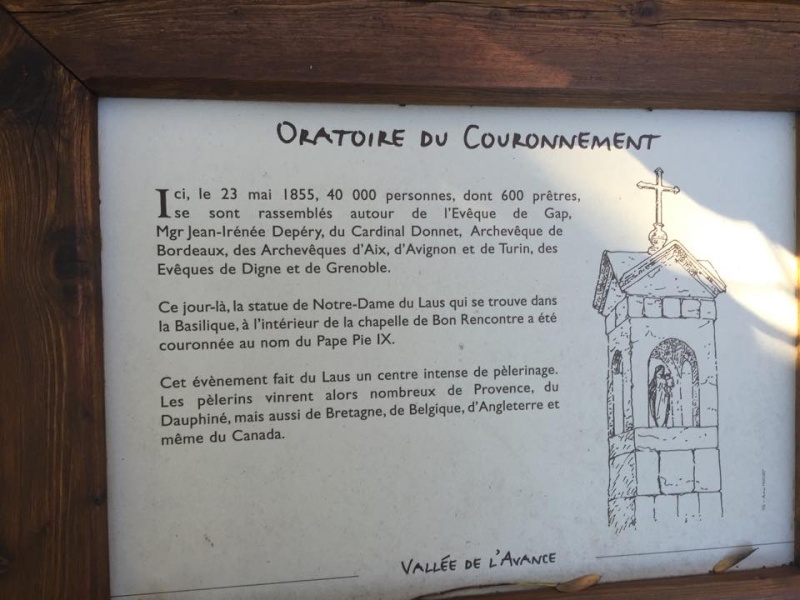 ORATOIRE DU COURONNEMENT
Ici, le 23 mai 1855, 40 000 personnes, dont 600 prêtres,
se sont rassemblés autour de l'Evêque de Gap,
Mgr Jean-Irénée Depéry, du Cardinal Donnet, Archevêque de
Bordeaux, des Archevêques d'Aix, d'Avignon et de Turin, des
Evêques de Digne et de Grenoble.
Ce jour-là, la statue de Notre-Dame du Laus qui se trouve dans
la Basilique, à l'intérieur de la chapelle de Bon Rencontre a été
couronnée au nom du Pape Pie IX.
Cet évènement fait du Laus un centre intense de pèlerinage.
Les pèlerins vinrent alors nombreux de Provence, du
Dauphiné, mais aussi de Bretagne, de Belgique, d'Angleterre et
même du Canada.
VALLÉE DE L'AVANCE